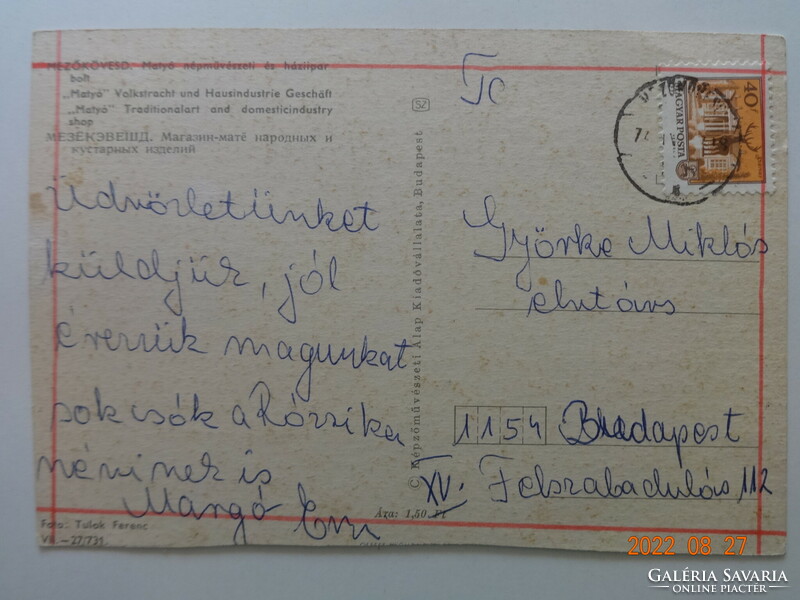 MEZŐKÖVESD. Matyó népművészeti és háziipar
bolt
„Matyó" Volkstracht und Hausindustrie Geschäft
„Matyó" Traditionalart and domesticindustry
shop
МЕЗЕКЭВЕШД. Магазин-матё народных и
кустарных изделий
Üdvözletünket
küldjük, jól
érezzük magunkat
sok csók a Rózsika
néninek is
Margó Erzsi
Foto: Tulok Ferenc
VII.–27/731
SZ
© Képzőművészeti Alap Kiadóvállalata, Budapest
Ára: 1,50 Ft
40 f
MAGYAR POSTA
Györke Miklós
elvtárs
1154 Budapest
XV. Felszabadulás 112
2022 08 27
GALÉRIA SAVARIA
ONLINE PIACTÉR